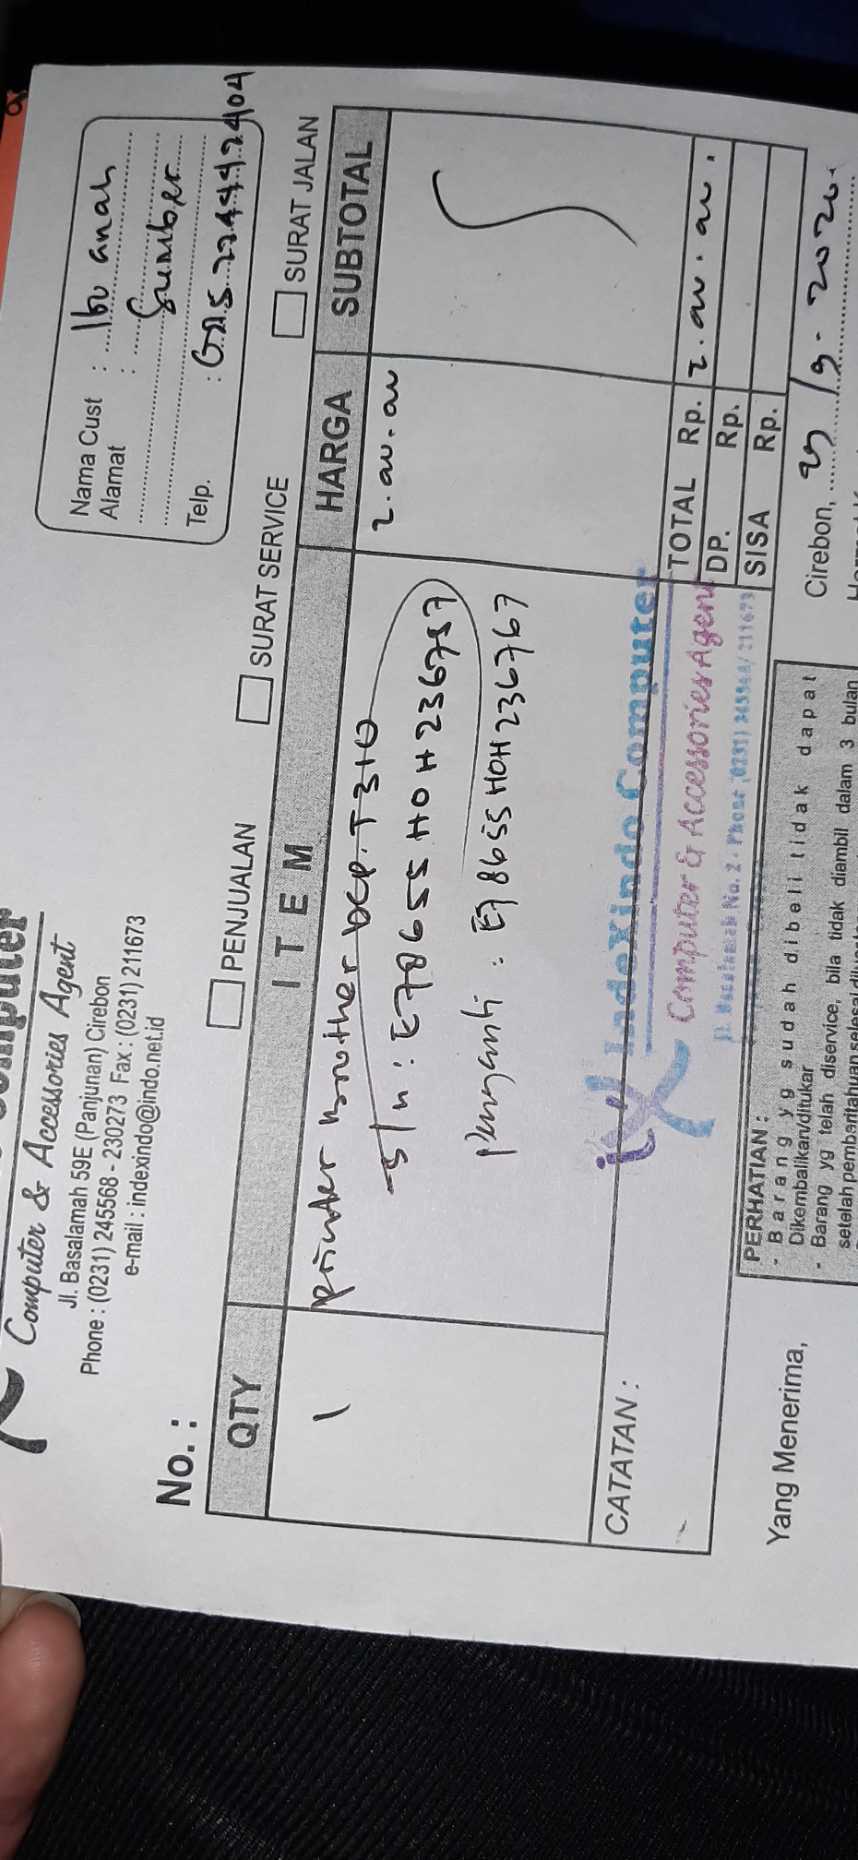 Computer
Computer & Accessories Agent
Jl. Basalamah 59E (Panjunan) Cirebon
Phone : (0231) 245568 - 230273 Fax : (0231) 211673
e-mail : indexindo@indo.net.id
Nama Cust : Ibu anah
Alamat : Sumber
Telp. :
No. :
PENJUALAN SURAT SERVICE SURAT JALAN
QTY ITEM HARGA SUBTOTAL
1 printer brother DCP. T310
s/n : E78655H0H236757
pengganti : E78655H0H236767
CATATAN :
IndeXindo Computer
Computer & Accessories Agent
TOTAL Rp.
DP. Rp.
SISA Rp.
PERHATIAN :
- Barang yg sudah dibeli tidak dapat
Dikembalikan/ditukar
- Barang yg telah diservice, bila tidak diambil dalam 3 bulan
setelah pemberitahuan selesai
Yang Menerima,
Cirebon, /9 - 2020.